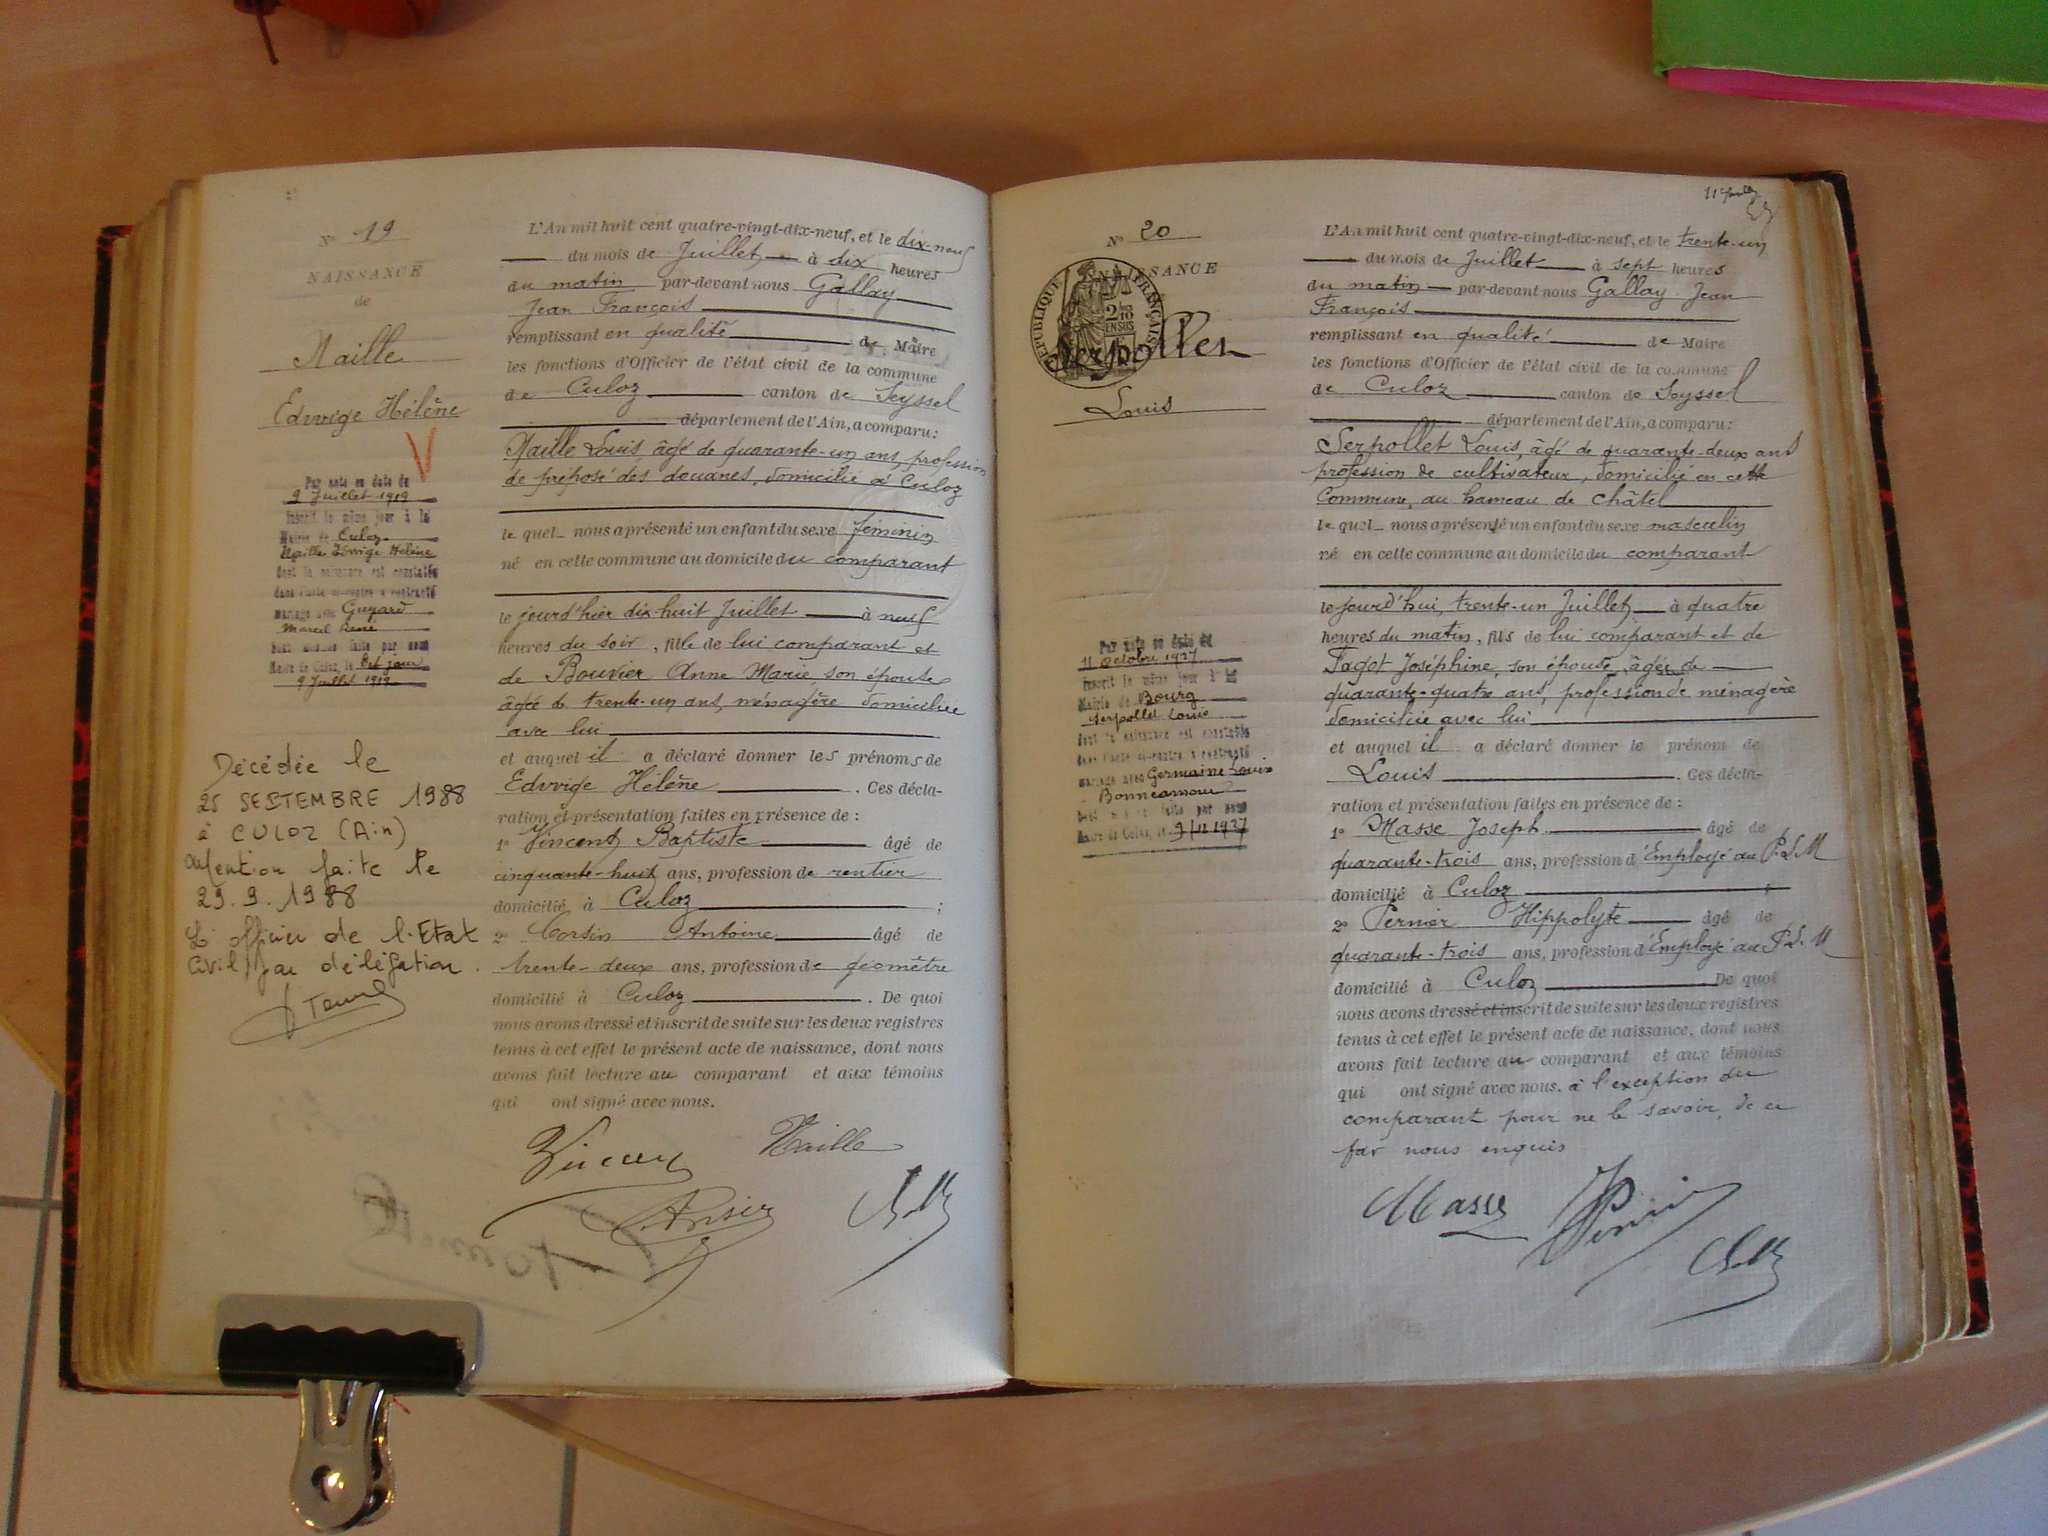 Nº 19
NAISSANCE
de
Naille
Edwige Hélène
Par acte en date du
9 Juillet 1919
inscrit le même jour à la
Mairie de Culoz
Naille Edwige Hélène
dont la naissance est constatée
dans l'acte ci-contre a contracté
mariage avec Guyard
Marcel René
Maire de Culoz, le dit jour
9 Juillet 1919
Décédée le
25 SEPTEMBRE 1988
à CULOZ (Ain)
Mention faite le
29.9.1988
L'officier de l'Etat
Civil par délégation.
L'An mil huit cent quatre-vingt-dix-neuf, et le dix-neuf
du mois de Juillet à dix heures
du matin par-devant nous Gallay
Jean François
remplissant en qualité de Maire
les fonctions d'Officier de l'état civil de la commune
de Culoz canton de Seyssel
département de l'Ain, a comparu:
Naille Louis, âgé de quarante-un ans, profession
de préposé des douanes, domicilié à Culoz
le quel nous a présenté un enfant du sexe féminin
né en cette commune au domicile du comparant
le jourd'hier dix-huit Juillet à neuf
heures du soir, fille de lui comparant et
de Bouvier Anne Marie, son épouse
âgée de trente-un ans, ménagère domiciliée
avec lui
et auquel il a déclaré donner les prénoms de
Edwige Hélène. Ces décla-
ration et présentation faites en présence de :
1º Vincent Baptiste âgé de
cinquante-huit ans, profession de rentier
domicilié à Culoz ;
2º Corsin Antoine âgé de
trente-deux ans, profession de géomètre
domicilié à Culoz. De quoi
nous avons dressé et inscrit de suite sur les deux registres
tenus à cet effet le présent acte de naissance, dont nous
avons fait lecture au comparant et aux témoins
qui ont signé avec nous.
Naille
Nº 20
NAISSANCE
RÉPUBLIQUE FRANÇAISE
2/10 EN SUS
Serpollet
Louis
Par acte en date du
11 Octobre 1927
inscrit le même jour à la
Mairie de Bourg
Serpollet Louis
dont la naissance est constatée
dans l'acte ci-contre a contracté
mariage avec Germaine Louise
Bonneamour
Maire de Culoz, le
L'An mil huit cent quatre-vingt-dix-neuf, et le trente-un
du mois de Juillet à sept heures
du matin par-devant nous Gallay Jean
François
remplissant en qualité de Maire
les fonctions d'Officier de l'état civil de la commune
de Culoz canton de Seyssel
département de l'Ain, a comparu:
Serpollet Louis, âgé de quarante-deux ans
profession de cultivateur, domicilié en cette
Commune, au hameau de Châtel
le quel nous a présenté un enfant du sexe masculin
né en cette commune au domicile du comparant
le jourd'hui, trente-un Juillet à quatre
heures du matin, fils de lui comparant et de
Fagot Joséphine, son épouse, âgée de
quarante-quatre ans, profession de ménagère
domiciliée avec lui
et auquel il a déclaré donner le prénom de
Louis. Ces décla-
ration et présentation faites en présence de :
1º Masse Joseph âgé de
quarante-trois ans, profession d'Employé au P.L.M
domicilié à Culoz ;
2º Pernier Hippolyte âgé de
quarante-trois ans, profession d'Employé au P.L.M
domicilié à Culoz. De quoi
nous avons dressé et inscrit de suite sur les deux registres
tenus à cet effet le présent acte de naissance, dont nous
avons fait lecture au comparant et aux témoins
qui ont signé avec nous. à l'exception du
comparant pour ne le savoir, de ce
par nous enquis
Masse